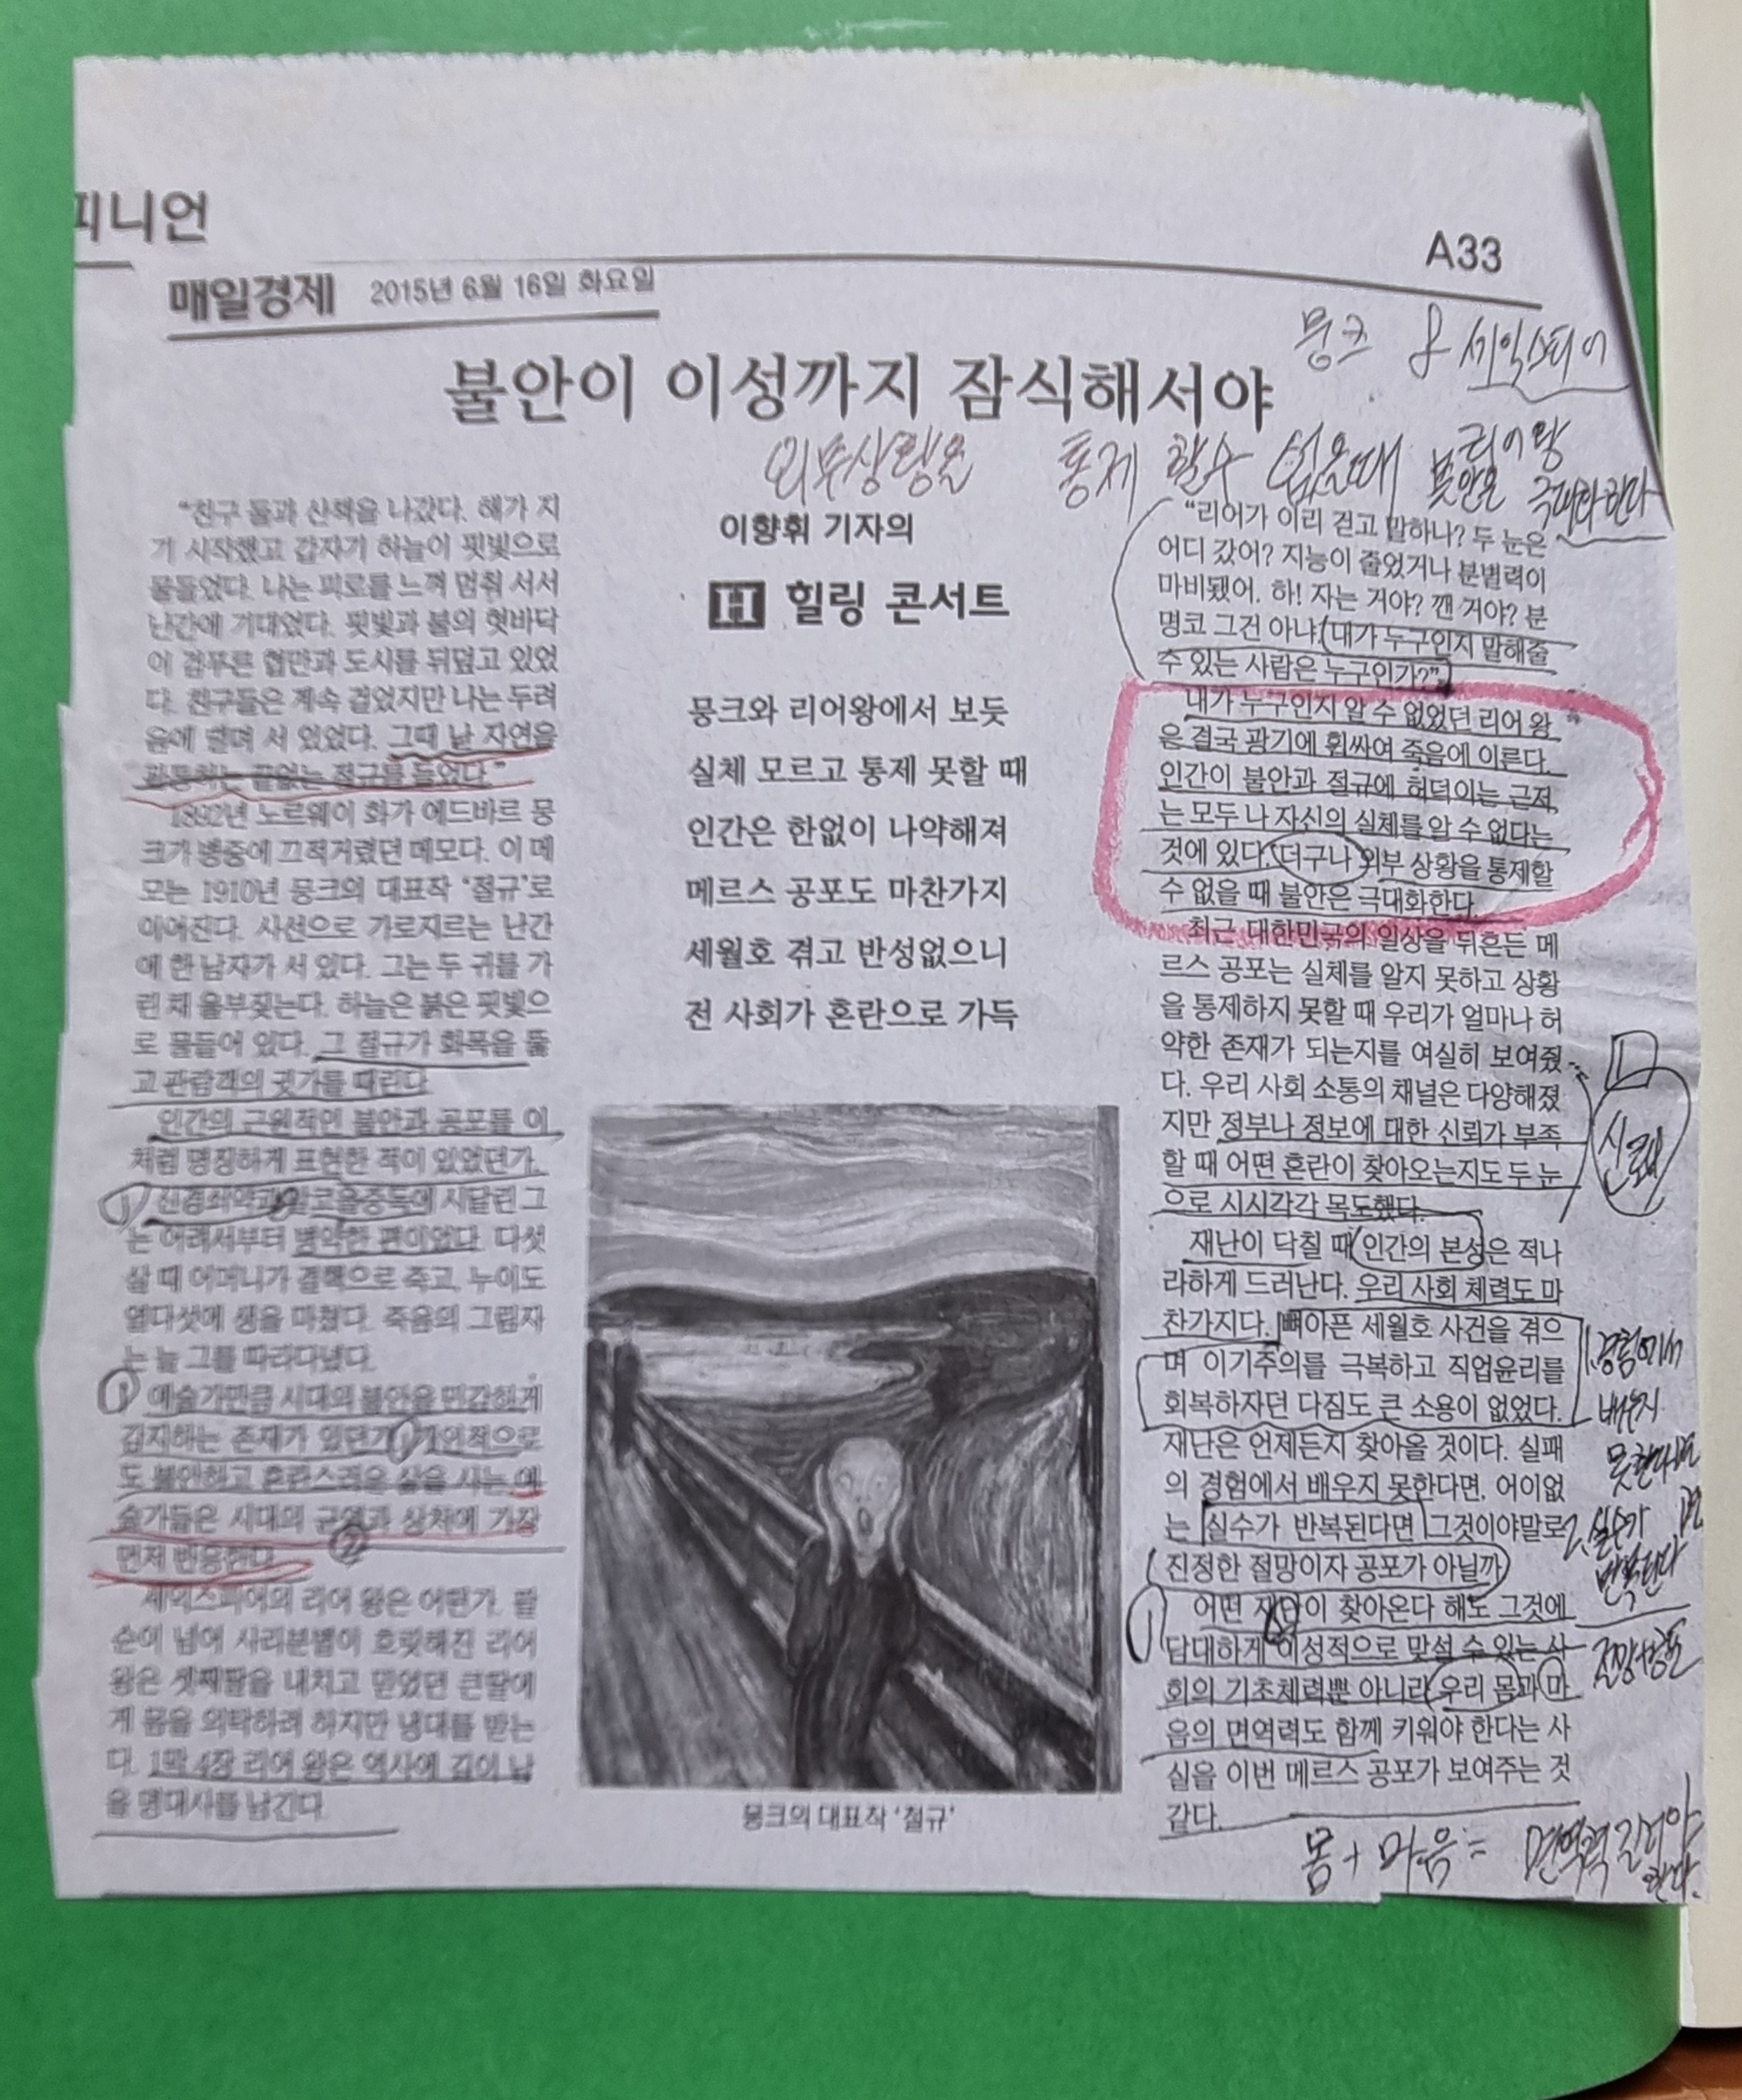 피니언
A33
매일경제 2015년 6월 16일 화요일
뭉크 & 세익스피어
불안이 이성까지 잠식해서야
리어왕
외부상황을 통제 할수 없을때 불안은 극대화한다
“친구 둘과 산책을 나갔다. 해가 지
기 시작했고 갑자기 하늘이 핏빛으로
물들었다. 나는 피로를 느껴 멈춰 서서
난간에 기대었다. 핏빛과 불의 혓바닥
이 검푸른 협만과 도시를 뒤덮고 있었
다. 친구들은 계속 걸었지만 나는 두려
움에 떨며 서 있었다. 그때 난 자연을
관통하는 끝없는 절규를 들었다.”
1892년 노르웨이 화가 에드바르 뭉
크가 병중에 끄적거렸던 메모다. 이 메
모는 1910년 뭉크의 대표작 ‘절규’로
이어진다. 사선으로 가로지르는 난간
에 한 남자가 서 있다. 그는 두 귀를 가
린 채 울부짖는다. 하늘은 붉은 핏빛으
로 물들어 있다. 그 절규가 화폭을 뚫
고 관람객의 귓가를 때린다.
인간의 근원적인 불안과 공포를 이
처럼 명징하게 표현한 적이 있었던가.
신경쇠약과 알코올중독에 시달린 그
는 어려서부터 병약한 편이었다. 다섯
살 때 어머니가 결핵으로 죽고, 누이도
열다섯에 생을 마쳤다. 죽음의 그림자
는 늘 그를 따라다녔다.
예술가만큼 시대의 불안을 민감하게
감지하는 존재가 있던가. 개인적으로
도 불안하고 혼란스러운 삶을 사는 예
술가들은 시대의 균열과 상처에 가장
먼저 반응한다.
②
셰익스피어의 리어 왕은 어떤가. 팔
순이 넘어 사리분별이 흐릿해진 리어
왕은 셋째딸을 내치고 믿었던 큰딸에
게 몸을 의탁하려 하지만 냉대를 받는
다. 1막 4장 리어 왕은 역사에 길이 남
을 명대사를 남긴다.
이향휘 기자의
H 힐링 콘서트
뭉크와 리어왕에서 보듯
실체 모르고 통제 못할 때
인간은 한없이 나약해져
메르스 공포도 마찬가지
세월호 겪고 반성없으니
전 사회가 혼란으로 가득
뭉크의 대표작 ‘절규’
“리어가 이리 걷고 말하나? 두 눈은
어디 갔어? 지능이 줄었거나 분별력이
마비됐어. 하! 자는 거야? 깬 거야? 분
명코 그건 아냐. 내가 누구인지 말해줄
수 있는 사람은 누구인가?”
내가 누구인지 알 수 없었던 리어 왕
은 결국 광기에 휩싸여 죽음에 이른다.
인간이 불안과 절규에 허덕이는 근저
는 모두 나 자신의 실체를 알 수 없다는
것에 있다. 더구나 외부 상황을 통제할
수 없을 때 불안은 극대화한다.
최근 대한민국의 일상을 뒤흔든 메
르스 공포는 실체를 알지 못하고 상황
을 통제하지 못할 때 우리가 얼마나 허
약한 존재가 되는지를 여실히 보여줬
다. 우리 사회 소통의 채널은 다양해졌
지만 정부나 정보에 대한 신뢰가 부족
할 때 어떤 혼란이 찾아오는지도 두 눈
으로 시시각각 목도했다.
재난이 닥칠 때 인간의 본성은 적나
라하게 드러난다. 우리 사회 체력도 마
찬가지다. 뼈아픈 세월호 사건을 겪으
며 이기주의를 극복하고 직업윤리를
회복하자던 다짐도 큰 소용이 없었다.
재난은 언제든지 찾아올 것이다. 실패
의 경험에서 배우지 못한다면, 어이없
는 실수가 반복된다면 그것이야말로
진정한 절망이자 공포가 아닐까.
어떤 재난이 찾아온다 해도 그것에
담대하게 이성적으로 맞설 수 있는 사
회의 기초체력뿐 아니라 우리 몸과 마
음의 면역력도 함께 키워야 한다는 사
실을 이번 메르스 공포가 보여주는 것
같다.
신뢰
1. 경험에서
배우지
못한다면
2. 실수가
반복된다면
절망+공포
몸 + 마음 = 면역력 길러야
한다.